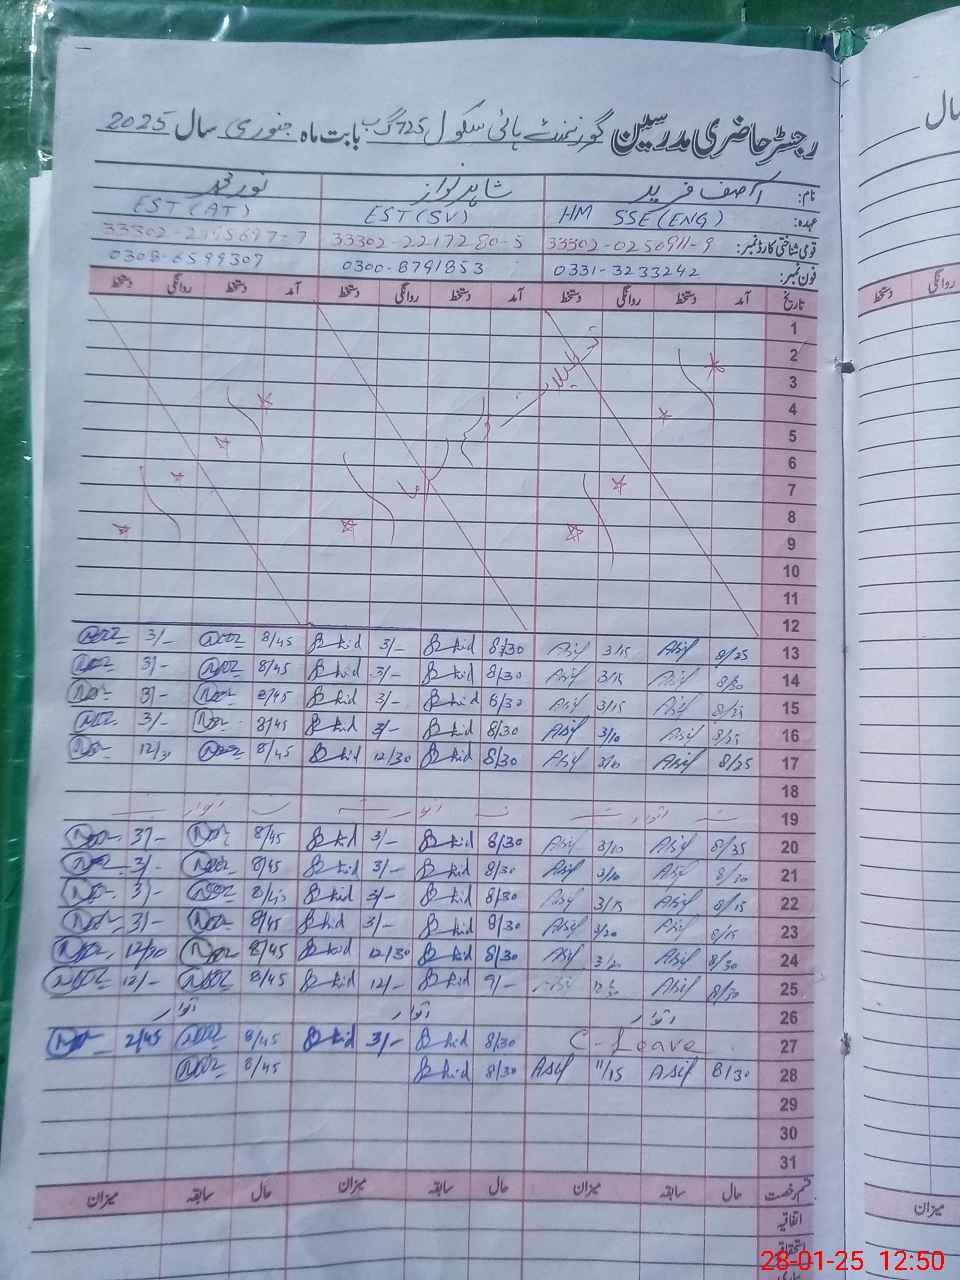 رجسٹر حاضری مدرسین گورنمنٹ ہائی سکول 725 گ ب بابت ماہ جنوری سال 2025
نام: آصف فرید شاہد نواز نور محمد
عہدہ: HM SSE (ENG) EST (SV) EST (AT)
قومی شناختی کارڈ نمبر: 33302-0250911-9 33302-2217280-5
فون نمبر: 0331-3233242 0300-8791853 0308-6599307
تاریخ آمد دستخط روانگی دستخط آمد دستخط روانگی دستخط آمد دستخط روانگی دستخط
1
2
3
4
5
6
7
8
9
10
11
12
13 8/25 Asif 3/15 Asif 8/30 Shid 3/- Shid 8/45 3/-
14 8/30 Asif 3/15 Asif 8/30 Shid 3/- Shid 8/45 3/-
15 8/35 Asif 3/15 Asif 8/30 Shid 3/- Shid 8/45 3/-
16 8/25 Asif 3/10 Asif 8/30 Shid 3/- Shid 8/45 3/-
17 8/25 Asif Asif 8/30 Shid 12/30 Shid 8/45 12/30
18
19 اتوار اتوار اتوار
20 8/35 Asif 3/10 Asif 8/30 Shid 3/- Shid 8/45 3/-
21 8/30 Asif 3/10 Asif 8/30 Shid 3/- Shid 8/45 3/-
22 8/15 Asif 3/15 Asif 8/30 Shid 3/- Shid 8/45 3/-
23 8/15 Asif 3/20 Asif 8/30 Shid 3/- Shid 8/45 3/-
24 8/30 Asif 3/20 Asif 8/30 Shid 12/30 Shid 8/45 12/30
25 8/30 Asif 12/30 Asif 9/- Shid 12/- Shid 8/45 12/-
26 اتوار اتوار اتوار
27 C-Leave 8/30 Shid 3/- Shid 8/45 2/45
28 8/30 Asif 11/15 Asif 8/30 Shid 8/45
29
30
31
قسم رخصت حال سابقہ میزان حال سابقہ میزان حال سابقہ میزان
اتفاقیہ
استحقاقیہ
سال
روانگی دستخط
میزان
28-01-25 12:50